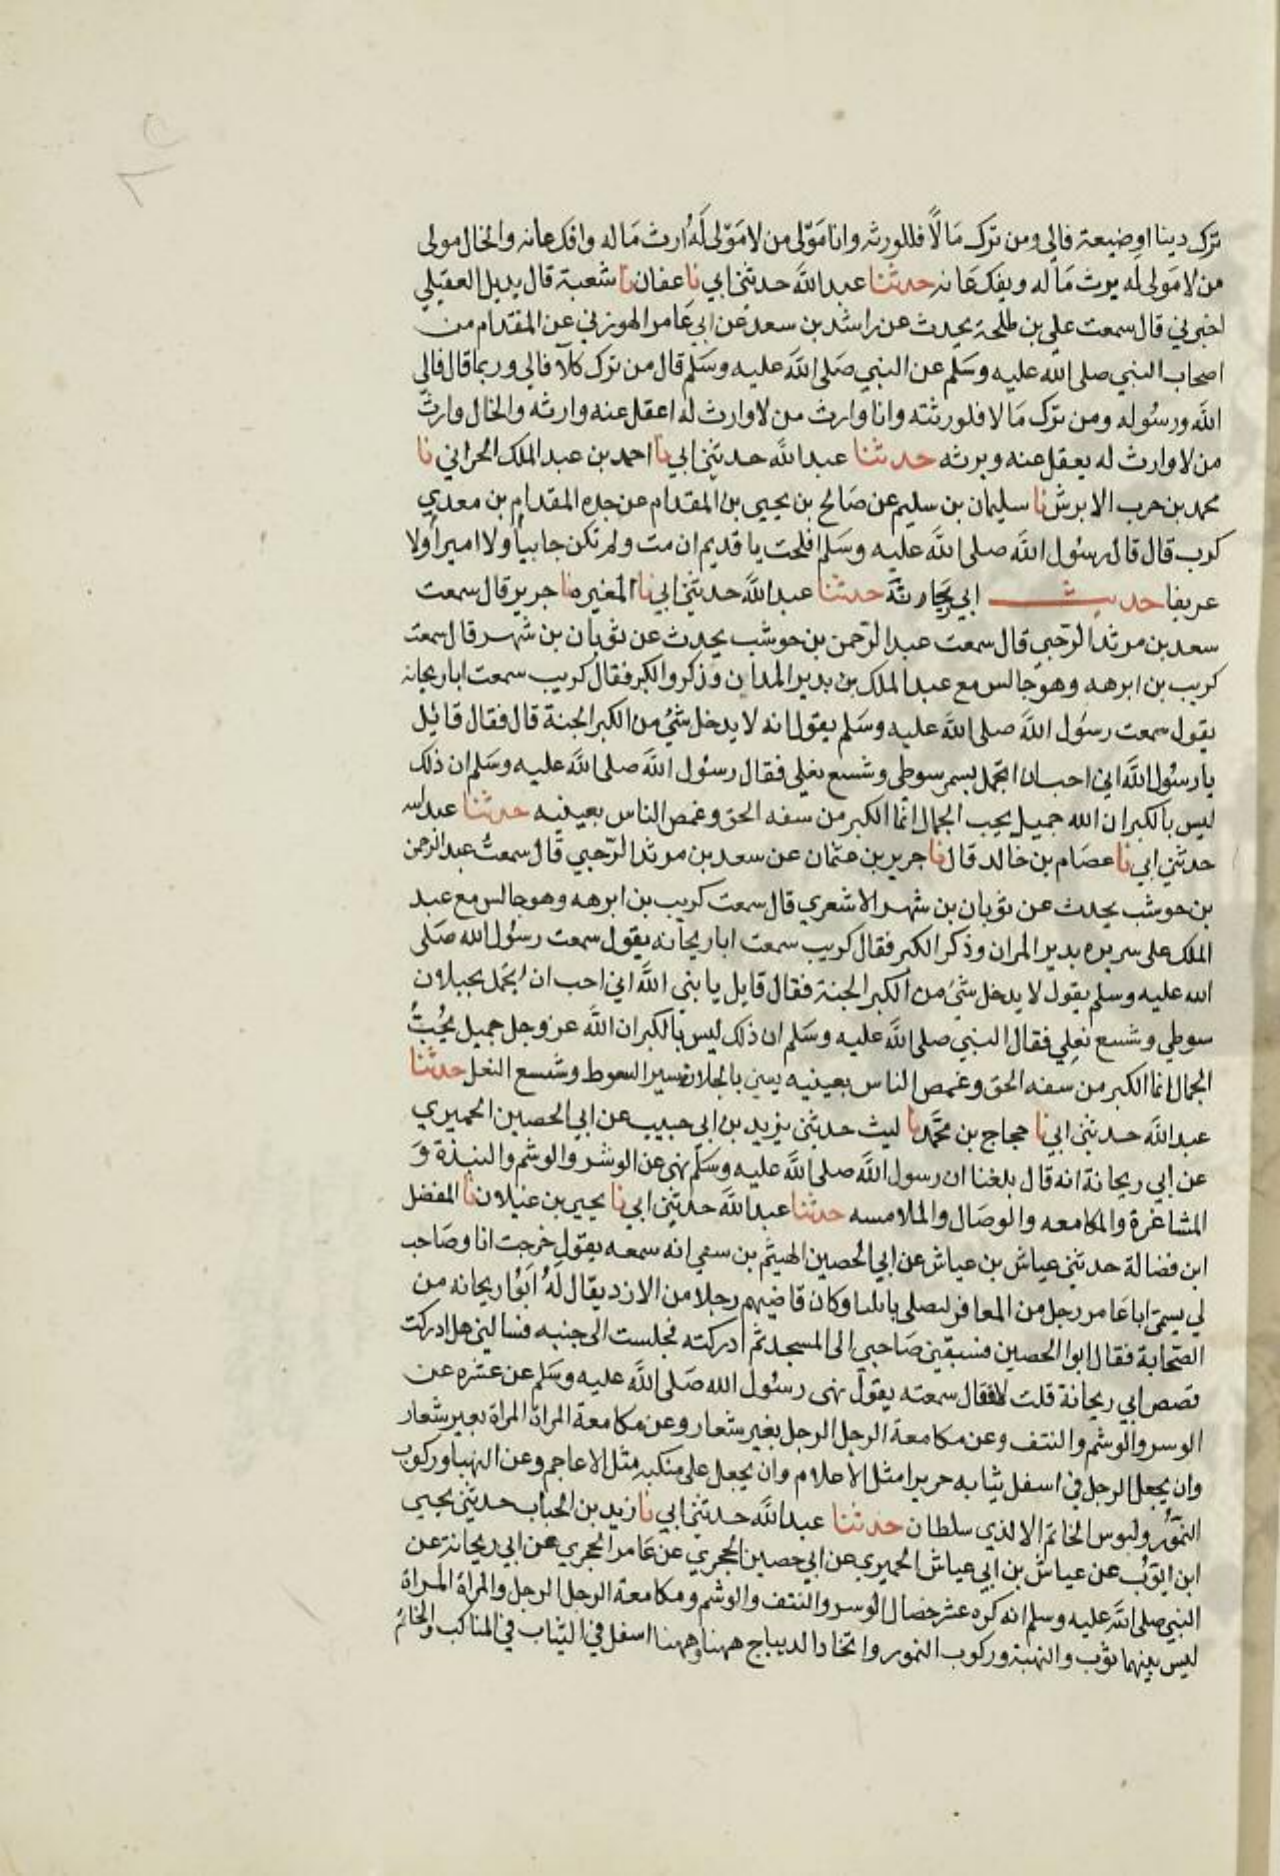 ترك دينا اوضيعة فالي ومن ترك مَالاً فللورثه وانا مَوْلى من لا مَوْلى لَهُ ارث مَاله وافك عانه والخال مولى
من لا مَولى له يرث مَاله ويفك عَانه حدثنا عبد اللَّه حدثني ابي نا عفان نا شعبة قال بديل العقيلي
اخبرني قال سمعت علي بن طلحة يحدث عن راشد بن سعد عن ابي عَامر الهوزني عن المقدام من
اصحاب النبي صلى الله عليه وسَلم عن النبي صَلى اللَّه عليه وسَلم قال من ترك كلاً فالي وربما قال فالى
اللَّه ورسُوله ومن ترك مَالا فلورثته وانا وارث من لا وارث له اعقل عنه وارثه والخال وارث
من لا وارث له يعقل عنه ويرثه حدثنا عبد اللَّه حدثني ابي نا احمد بن عبد الملك الحراني نا
محمد بن حرب الابرش نا سليمان بن سليم عن صَالح بن يحيى بن المقدام عن جده المقدام بن معدي
كرب قال قال رسُول اللَّه صلى اللَّه عليه وسَلم افلحت يا قديم ان مت ولم تكن جابياً ولا اميراً ولا
عريفا حديث ابي ريحانة حدثنا عبد اللَّه حدثني ابي نا المغيره نا جرير قال سمعت
سعد بن مرثد الرّحبي قال سمعت عبد الرّحمن بن حوشب يحدث عن ثوبان بن شهر قال سمعت
كريب بن ابرهه وهو جالس مع عبد الملك بن بدير المدان وذكروا الكبر فقال كريب سمعت ابا ريحانه
يقول سمعت رسُول اللَّه صلى اللَّه عليه وسَلم يقول انه لا يدخل شيُ من الكبر الجنة قال فقال قايل
يا رسُول اللَّه اني احب ان اتجمل بسمر سوطي وشسع نعلي فقال رسُول اللَّه صلى اللَّه عليه وسَلم ان ذلك
ليس بالكبر ان الله جميل يحب الجمال انما الكبر من سفه الحق وغمص الناس بعينه حدثنا عبد الله
حدثني ابي نا عصَام بن خالد قال نا جرير بن عثمان عن سعد بن مرثد الرّحبي قال سمعتُ عبد الرحمن
بن حوشب يحدث عن ثوبان بن شهر الاشعري قال سمعت كريب بن ابرهه وهو جالس مع عبد
الملك على سريره بدير المران وذكر الكبر فقال كريب سمعت ابا ريحانه يقول سمعت رسُول الله صَلى
الله عليه وسلم يقول لا يدخل شيُ من الكبر الجنة فقال قايل يا نبي اللَّه اني احب ان اتجمل بجبلان
سوطي وشسع نعلي فقال النبي صلى اللَّه عليه وسَلم ان ذلك ليس بالكبر ان اللَّه عز وجل جميل يُحُبُّ
الجمال انما الكبر من سفه الحق وغمص الناس بعينيه يعني بالجلان سير السوط وشسع النعل حدثنا
عبد اللَّه حدثني ابي نا حجاج بن محمّد نا ليث حدثني يزيد بن ابي حبيب عن ابي الحصين الحميري
عن ابي ريحانة انه قال بلغنا ان رسول اللَّه صلى اللَّه عليه وسَلم نهى عن الوشر والوشم والنبذة وَ
المشاغرة والمكامعه والوصَال والملامسه حدثنا عبد اللَّه حدثني ابي نا يحيى بن غيلان نا المفضل
ابن فضالة حدثني عياش بن عياش عن ابي الحصين الهيثم بن سفي انه سمعه يقول خرجت انا وصَاحب
لي يسمّى ابا عَامر رجل من المعافر ليصلي بايليا وكان قاضيهم رجلا من الازد يقال لَهُ ابَوُا ريحانه من
الصّحابة فقال ابوا الحصين فسبقني صَاحبي الى المسجد ثم ادركته فجلست الى جنبه فسالني هل ادركت
قصص ابي ريحانة قلت لا فقال سمعته يقول نهى رسُول الله صَلى اللَّه عليه وسَلم عن عشره عن
الوسر والوشم والنتف وعن مكامعة الرجل الرجل بغير شعار وعن مكامعة المراة المراة بغير شعار
وان يجعل الرجل في اسفل ثيابه حريرا مثل الاعلام وان يجعل على منكبيه مثل الاعاجم وعن النهبا وركوب
النمُور ولبوس الخاتم الا لذي سلطان حدثنا عبد اللَّه حدثني ابي نا زيد بن الحباب حدثني يحيى
ابن ايوُّب عن عياش بن ابي عياش الحميري عن ابي حصين الحجري عن عَامر الحجري عن ابي ريحانة عن
النبي صلى اللَّه عليه وسلم انه كره عشر خصال الوسر والنتف والوشم ومكامعة الرجل الرجل والمراة المراة
ليس بينهما ثوب والنهبة وركوب النمور واتخاذ الديباج ههنا وههنا اسفل في الثياب في المناكب والخاتم